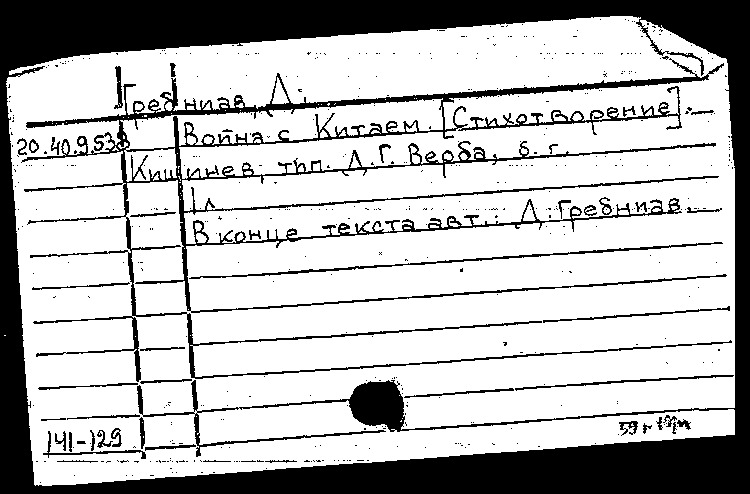 Гребниав, Д.
20.40.9.538
Война с Китаем. [Стихотворение].
Кишинев, тип. Д.Г. Верба, б. г.
1 л
В конце текста авт.: Д. Гребниав.
141-129
59 г